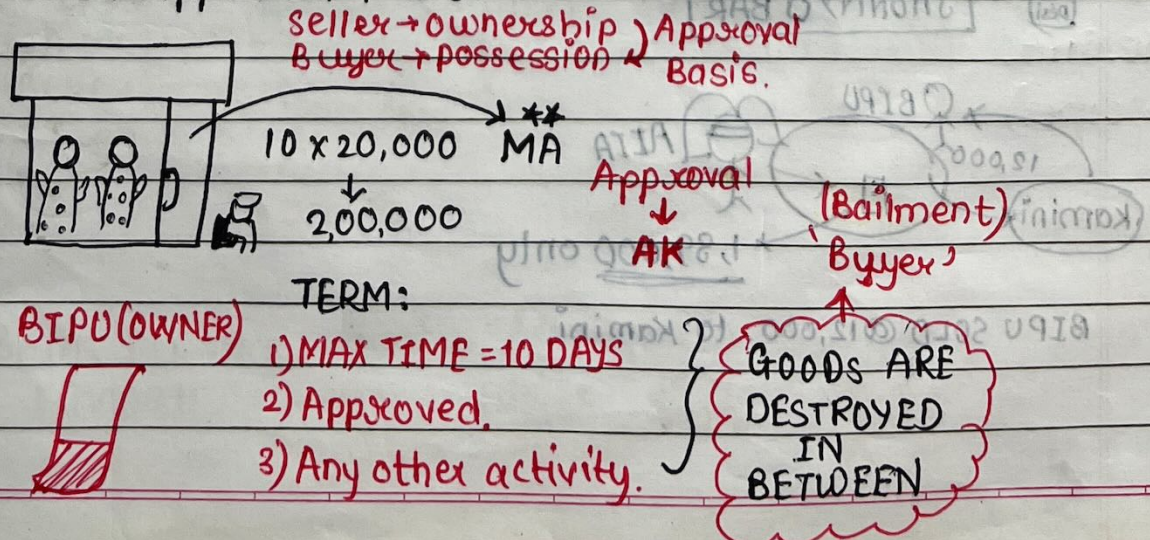 Seller→ownership
Buyer→possession
Approval
Basis.
10 x 20,000
MA
2,00,000
Approval
AK
(Bailment)
'Buyer'
TERM:
BIPU (OWNER)
1) MAX TIME = 10 DAYS
2) Approved.
3) Any other activity.
GOODS ARE
DESTROYED
IN
BETWEEN